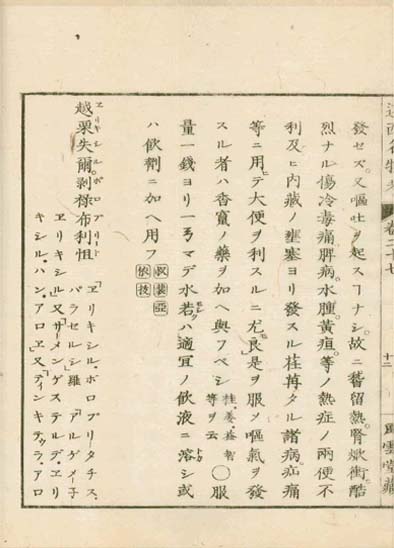 遠西名物考 卷二十七 十二 風雲堂藏
發セズ又嘔吐ヲ起スヿナシ故ニ稽留熱腎焮衝酷
烈ナル傷冷毒痛脾病水腫黃疸等ノ熱症ノ兩便不
利及ヒ內藏ノ壅塞ヨリ發スル 諸病疝痛
等ニ用ヒテ大便ヲ利スルニ尤良是ヲ服メ嘔氣ヲ發
スル者ハ香竄ノ藥ヲ加ヘ與フベシ 桂、姜、茴香 等ヲ云 ○服
量一錢ヨリ一弓マデ水若クハ適宜ノ飮液ニ溶シ或
ハ飮劑ニ加ヘ用フ 叔裴亞 依技
越栗失爾剥祿布利怛 ヱリキシル、ボロプリート
ヱリキシル、ボロプリータチス、
パラセルシ羅「アルゲメー子
ヱリキシル」又「サーメンゲステルデ、ヱリ
キシル、ハン、アロヱ」又「ティンキテュラアロ